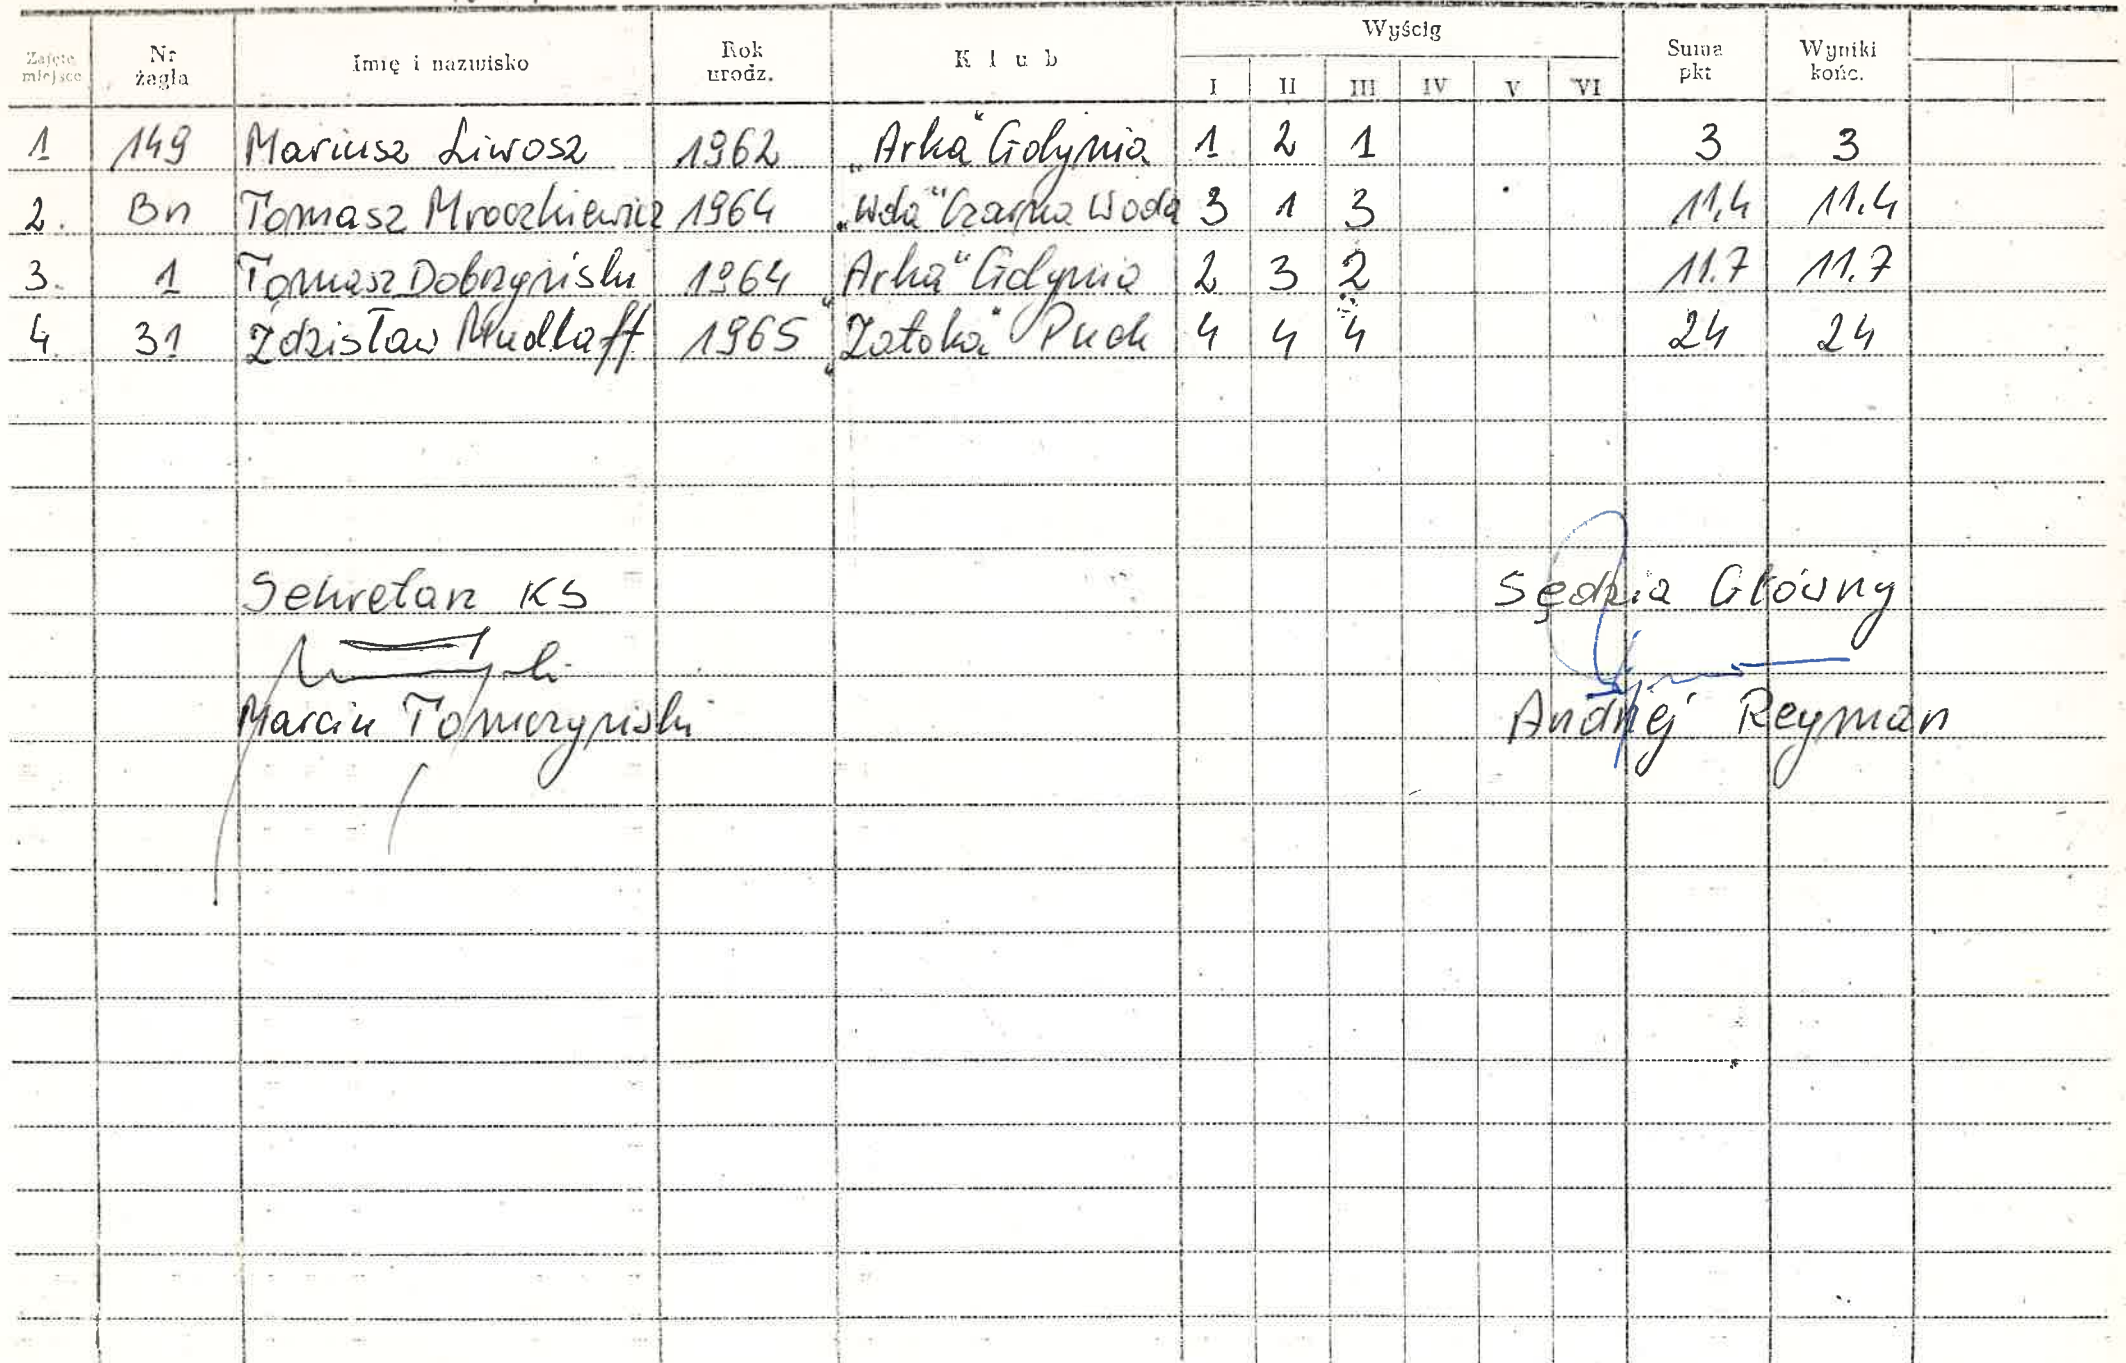 Zajęte miejsce Nr żagla Imię i nazwisko Rok urodz. Klub Wyścig I II III IV V VI Suma pkt Wyniki końc.
1 149 Mariusz Liwosz 1962 "Arka" Gdynia 1 2 1 3 3
2. Bn Tomasz Mroczkiewicz 1964 "Wda" Czarna Woda 3 1 3 11,4 11.4
3. 1 Tomasz Dobrzyński 1964 "Arka" Gdynia 2 3 2 11.7 11.7
4. 31 Zdzisław Mudlaff 1965 "Zatoka" Puck 4 4 4 24 24
Sekretarz KS Sędzia Główny
Marcin Tomczyński Andrzej Reyman